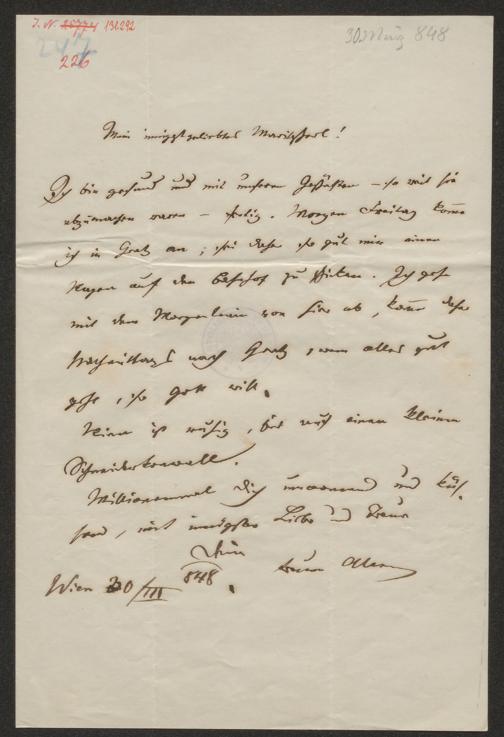 I. N. 131.292
247
226
30 März 848
Mein innigstgeliebtes !
Ich bin gesund und mit unseren Geschäften – so weit sie
abzumachen waren – fertig. Morgen Freitag komme
ich in Gratz an; sei daher so gut mir einen
Wagen auf den Bahnhof zu schicken. Ich gehe
mit dem von hier ab, komme daher
Nachmittags nach Gratz, wenn alles gut
geht, so Gott will.
Wien ist ruhig, bis auf einen kleinen
Schneiderkrawall.
Millionenmal Dich umarmend und küs-
send, mit innigster Liebe und Treue
Dein
Wien 30/III 848. treuer